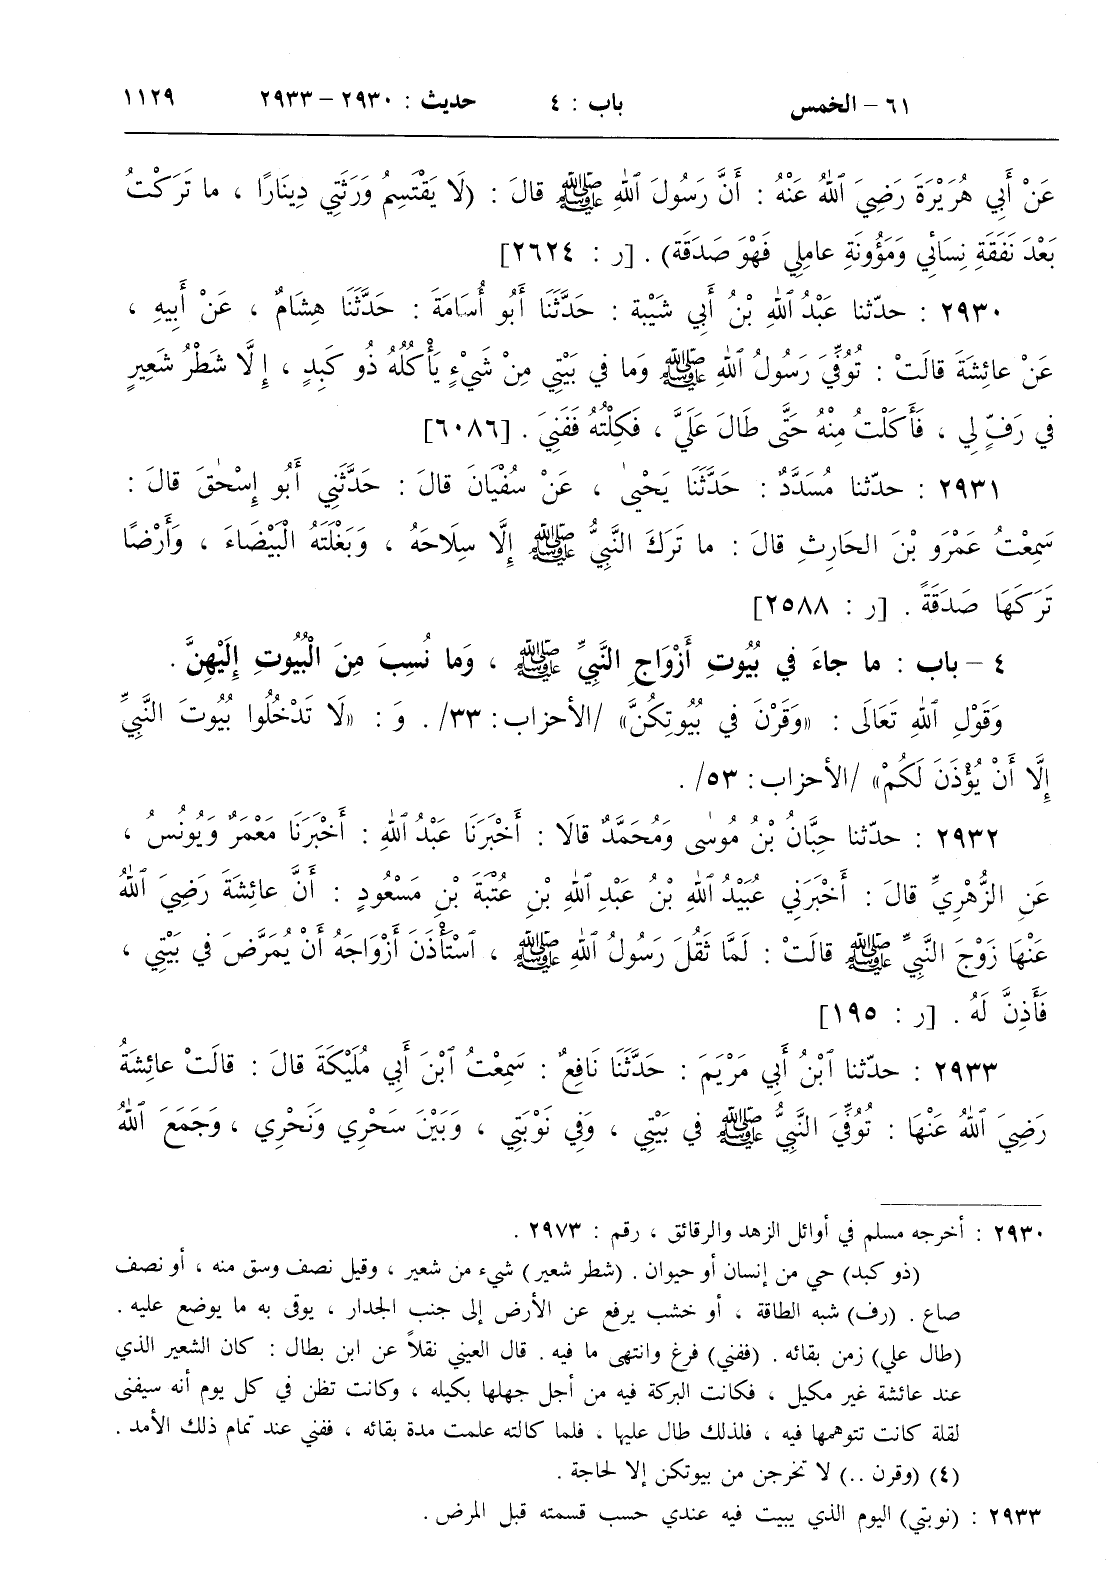 ٦١ – الخمس باب : ٤ حديث : ٢٩٣٠ – ٢٩٣٣ ١١٢٩
عَنْ أَبِي هُرَيْرَةَ رَضِيَ ٱللهُ عَنْهُ : أَنَّ رَسُولَ ٱللهِ ﷺ قالَ : (لَا يَقْتَسِمُ وَرَثَتِي دِينَارًا ، ما تَرَكْتُ
بَعْدَ نَفَقَةِ نِسَائِي وَمَؤُونَةِ عامِلِي فَهْوَ صَدَقَة) . [ر : ٢٦٢٤]
٢٩٣٠ : حدّثنا عَبْدُ ٱللهِ بْنُ أَبِي شَيْبَة : حَدَّثَنَا أَبُو أُسَامَةَ : حَدَّثَنَا هِشَامٌ ، عَنْ أَبِيهِ ،
عَنْ عائِشَةَ قالَتْ : تُوُفِّيَ رَسُولُ ٱللهِ ﷺ وَما في بَيْتِي مِنْ شَيْءٍ يَأْكُلُهُ ذُو كَبِدٍ ، إِلَّا شَطْرُ شَعِيرٍ
في رَفٍّ لِي ، فَأَكَلْتُ مِنْهُ حَتَّى طَالَ عَلَيَّ ، فَكِلْتُهُ فَفَنِيَ . [٦٠٨٦]
٢٩٣١ : حدّثنا مُسَدَّدٌ : حَدَّثَنَا يَحْيىٰ ، عَنْ سُفْيَانَ قالَ : حَدَّثَنِي أَبُو إِسْحٰقَ قالَ :
سَمِعْتُ عَمْرَو بْنَ الحَارِثِ قالَ : ما تَرَكَ النَّبِيُّ ﷺ إِلَّا سِلَاحَهُ ، وَبَغْلَتَهُ الْبَيْضَاءَ ، وَأَرْضًا
تَرَكَهَا صَدَقَةً . [ر : ٢٥٨٨]
٤ – باب : ما جاءَ في بُيُوتِ أَزْوَاجِ النَّبِيِّ ﷺ ، وَما نُسِبَ مِنَ الْبُيُوتِ إِلَيْهِنَّ .
وَقَوْلِ ٱللهِ تَعَالَى : «وَقَرْنَ في بُيُوتِكُنَّ» /الأحزاب: ٣٣/. وَ : «لَا تَدْخُلُوا بُيُوتَ النَّبِيِّ
إِلَّا أَنْ يُؤْذَنَ لَكُمْ» /الأحزاب: ٥٣/ .
٢٩٣٢ : حدّثنا حِبَّانُ بْنُ مُوسٰى وَمُحَمَّدٌ قالَا : أَخْبَرَنَا عَبْدُ ٱللهِ : أَخْبَرَنَا مَعْمَرٌ وَيُونُسُ ،
عَنِ الزُّهْرِيِّ قالَ : أَخْبَرَنِي عُبَيْدُ ٱللهِ بْنُ عَبْدِ ٱللهِ بْنِ عُتْبَةَ بْنِ مَسْعُودٍ : أَنَّ عائِشَةَ رَضِيَ ٱللهُ
عَنْهَا زَوْجَ النَّبِيِّ ﷺ قالَتْ : لَمَّا ثَقُلَ رَسُولُ ٱللهِ ﷺ ، ٱسْتَأْذَنَ أَزْوَاجَهُ أَنْ يُمَرَّضَ في بَيْتِي ،
فَأَذِنَّ لَهُ . [ر : ١٩٥]
٢٩٣٣ : حدّثنا ٱبْنُ أَبِي مَرْيَمَ : حَدَّثَنَا نَافِعٌ : سَمِعْتُ ٱبْنَ أَبِي مُلَيْكَةَ قالَ : قالَتْ عائِشَةُ
رَضِيَ ٱللهُ عَنْهَا : تُوُفِّيَ النَّبِيُّ ﷺ في بَيْتِي ، وَفِي نَوْبَتِي ، وَبَيْنَ سَحْرِي وَنَحْرِي ، وَجَمَعَ ٱللهُ
٢٩٣٠ : أخرجه مسلم في أوائل الزهد والرقائق ، رقم : ٢٩٧٣ .
(ذو كبد) حي من إنسان أو حيوان . (شطر شعير) شيء من شعير ، وقيل نصف وسق منه ، أو نصف
صاع . (رف) شبه الطاقة ، أو خشب يرفع عن الأرض إلى جنب الجدار ، يوقى به ما يوضع عليه .
(طال علي) زمن بقائه . (ففني) فرغ وانتهى ما فيه . قال العيني نقلاً عن ابن بطال : كان الشعير الذي
عند عائشة غير مكيل ، فكانت البركة فيه من أجل جهلها بكيله ، وكانت تظن في كل يوم أنه سيفنى
لقلة كانت تتوهمها فيه ، فلذلك طال عليها ، فلما كالته علمت مدة بقائه ، ففني عند تمام ذلك الأمد .
(٤) (وقرن ..) لا تخرجن من بيوتكن إلا لحاجة .
٢٩٣٣ : (نوبتي) اليوم الذي يبيت فيه عندي حسب قسمته قبل المرض .